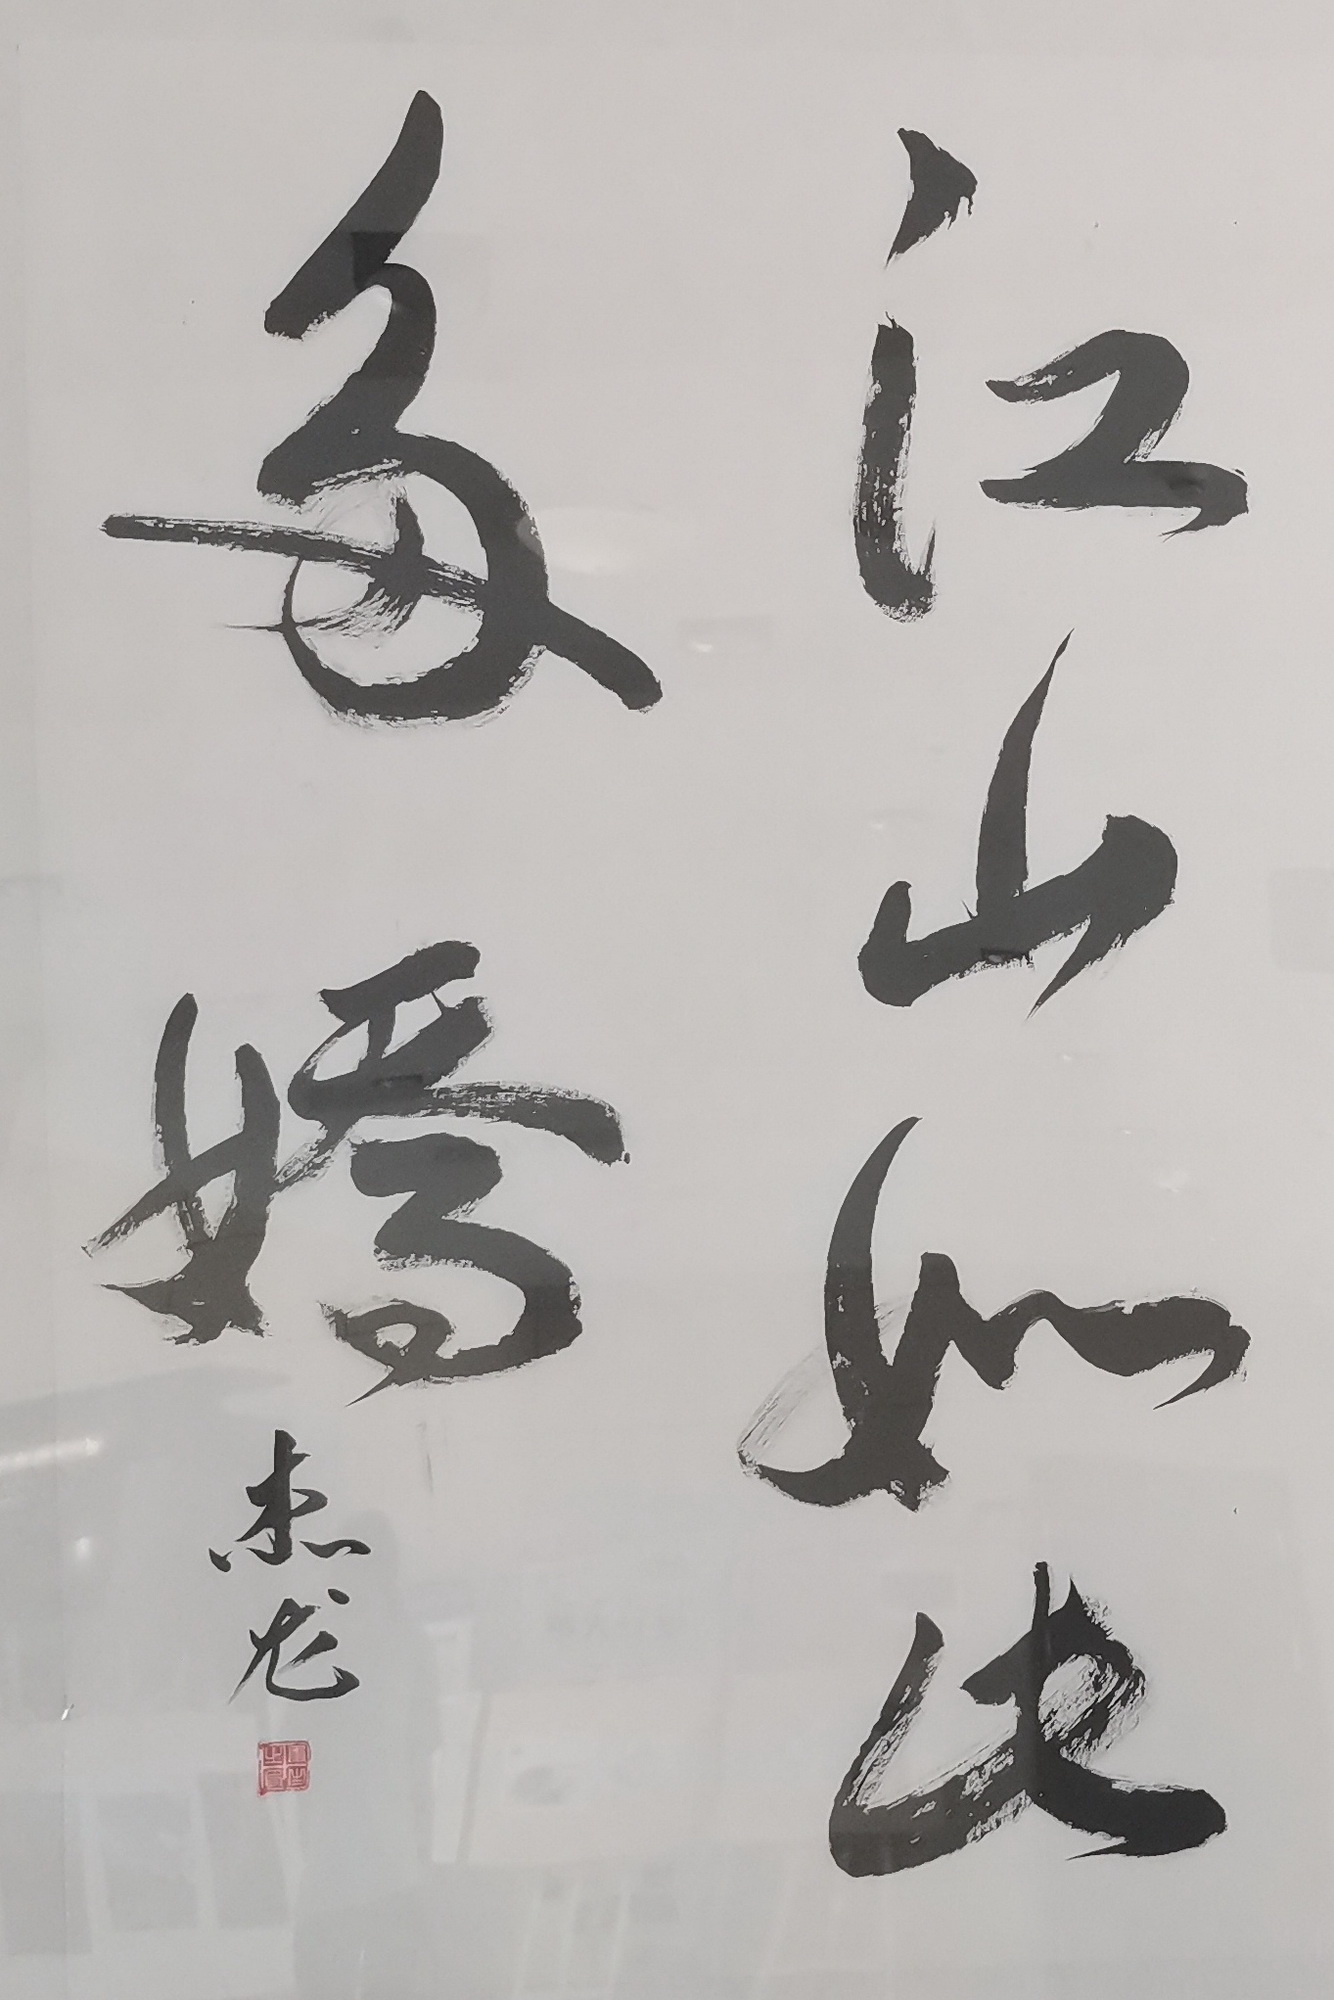 江山如此
多娇
杰龙